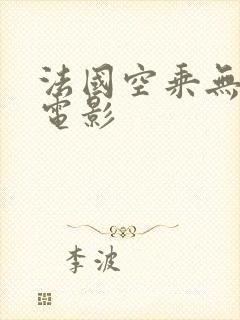 法國空乘無
電影
李波